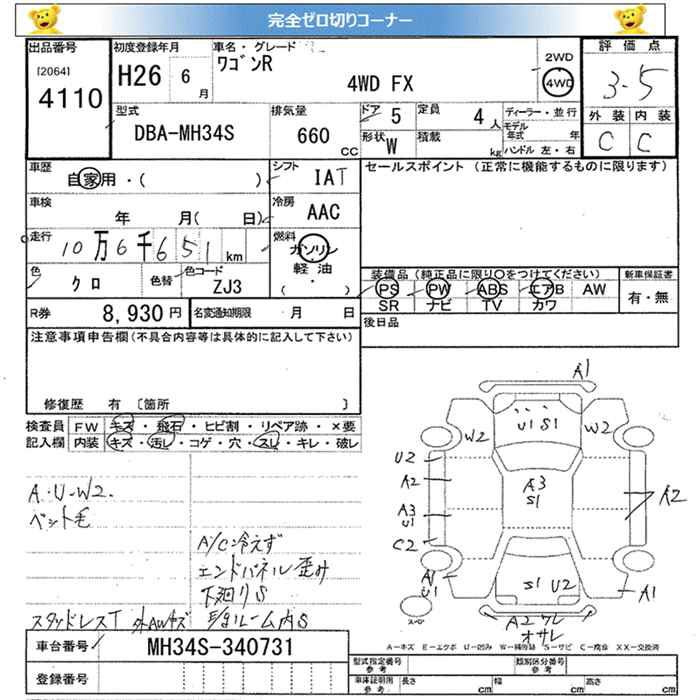 完全ゼロ切りコーナー
出品番号
[2064]
4110
初度登録年月
H26 6月
車名・グレード
ワゴンR
4WD FX
2WD
4WD
評価点
3-5
外装 内装
C C
型式
DBA-MH34S
排気量
660 CC
ドア 5
定員 4人
形状 W
積載 kg
ディーラー・並行
モデル年式 年
ハンドル 左・右
車歴
自家用・( )
シフト
IAT
セールスポイント (正常に機能するものに限ります)
車検
年 月( 日)
冷房
AAC
走行
10万6千651km
燃料
ガソリン
軽油
( ・ )
色
クロ
色替
色コード
ZJ3
装備品(純正品に限り○をつけてください)
新車保証書
PS PW ABS エアB AW
有・無
SR ナビ TV カワ
R券 8,930円
名変通知期限 月 日
後日品
注意事項申告欄(不具合内容等は具体的に記入して下さい)
修復歴 有 〔箇所 〕
検査員記入欄
FW キズ・飛石・ヒビ割・リペア跡・×要
内装 キズ・汚レ・コゲ・穴・スレ・キレ・破レ
A・U-W2.
ペット毛
A/C冷えず
エンドパネル歪み
下廻りS
スタッドレスT 外AWキズ
ルーム内S
A1
U1 S1
W2
W2
U2
A2
A3
U1
C2
A3
S1
A2
A1
U1
S1 U2
A1
スペア
A2ワレ
オサレ
A-キズ E-エクボ U-凹み W-補修跡 S-サビ C-腐食 XX-交換済
車台番号
MH34S-340731
登録番号
型式指定番号
参考
類別区分番号
参考
車庫証明用
参考
長さ cm 幅 cm 高さ cm